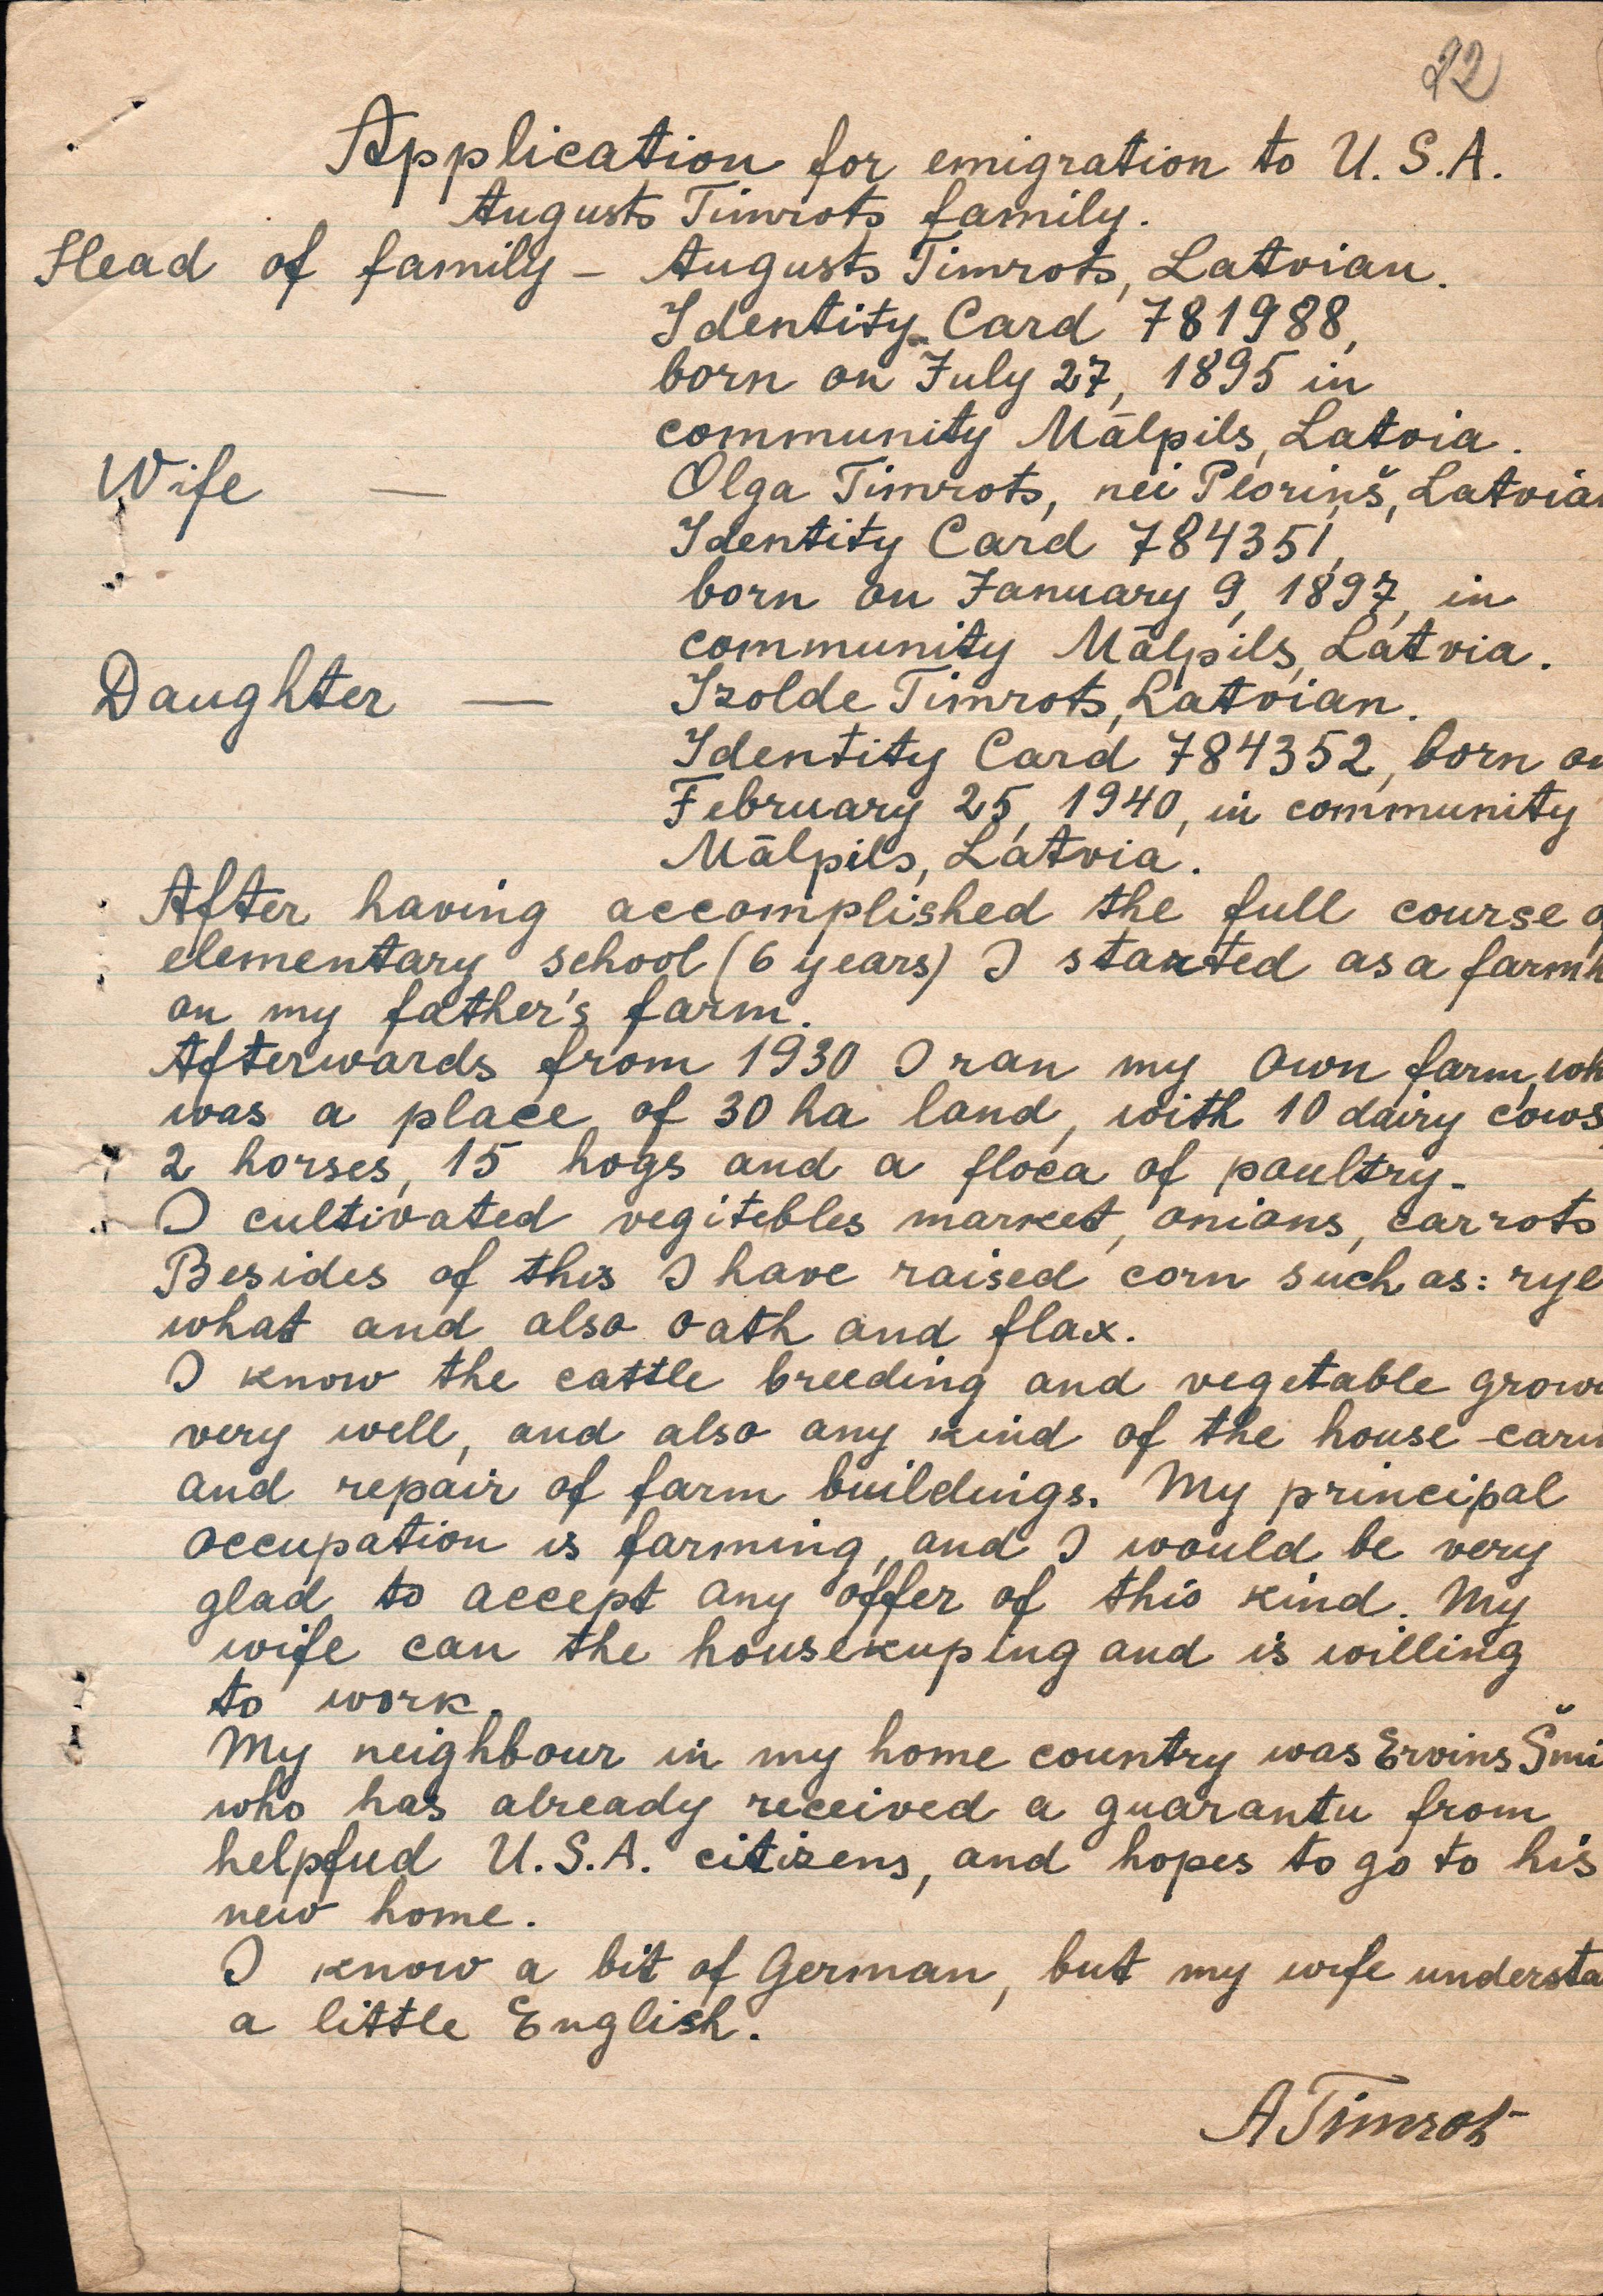 22
Application for emigration to U.S.A.
Augusts Timrots family.
Head of family – Augusts Timrots, Latvian.
Identity Card 781988,
born on July 27, 1895 in
community Mālpils, Latvia.
Wife — Olga Timrots, nei Ploriņš, Latvian
Identity Card 784351,
born on January 9, 1897, in
community Mālpils, Latvia.
Daughter — Izolde Timrots, Latvian.
Identity Card 784352, born on
February 25, 1940, in community
Mālpils, Latvia.
After having accomplished the full course o
elementary school (6 years) I started as a farmh
on my father's farm.
Afterwards from 1930 I ran my own farm, wh
was a place of 30 ha land, with 10 dairy cows,
2 horses, 15 hogs and a floca of poultry.
I cultivated vegitebles market, onions, carrots
Besides of this I have raised corn such as: rye
what and also oath and flax.
I know the cattle breeding and vegetable grow
very well, and also any kind of the house-carin
and repair of farm buildings. My principal
occupation is farming, and I would be very
glad to accept any offer of this kind. My
wife can the housekuping and is willing
to work.
My neighbour in my home country was Ervins Šmi
who has already received a guarantu from
helpfud U.S.A. citizens, and hopes to go to his
new home.
I know a bit of German, but my wife understa
a little English.
A Timrot